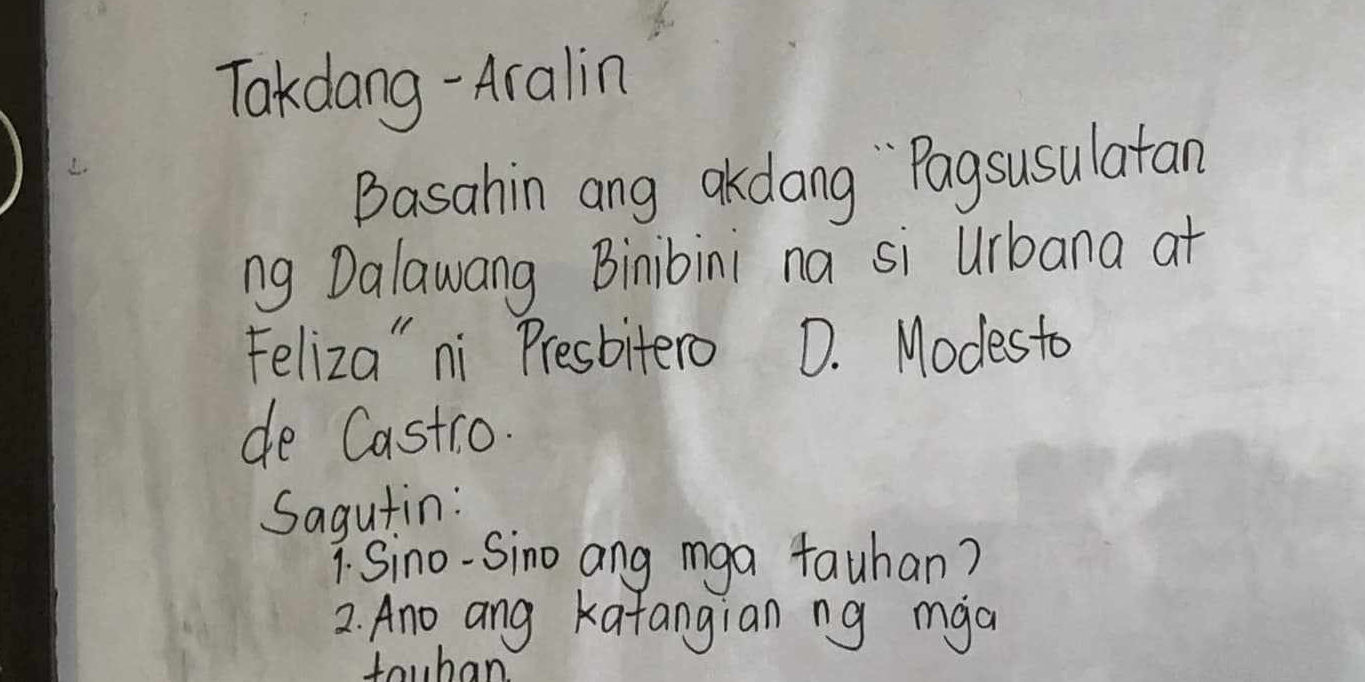 Takdang-Aralin
Basahin ang akdang "Pagsusulatan
ng Dalawang Binibini na si Urbana at
Feliza" ni Presbitero D. Modesto
de Castro.
Sagutin:
1. Sino-Sino ang mga tauhan?
2. Ano ang katangian ng mga
tauhan.